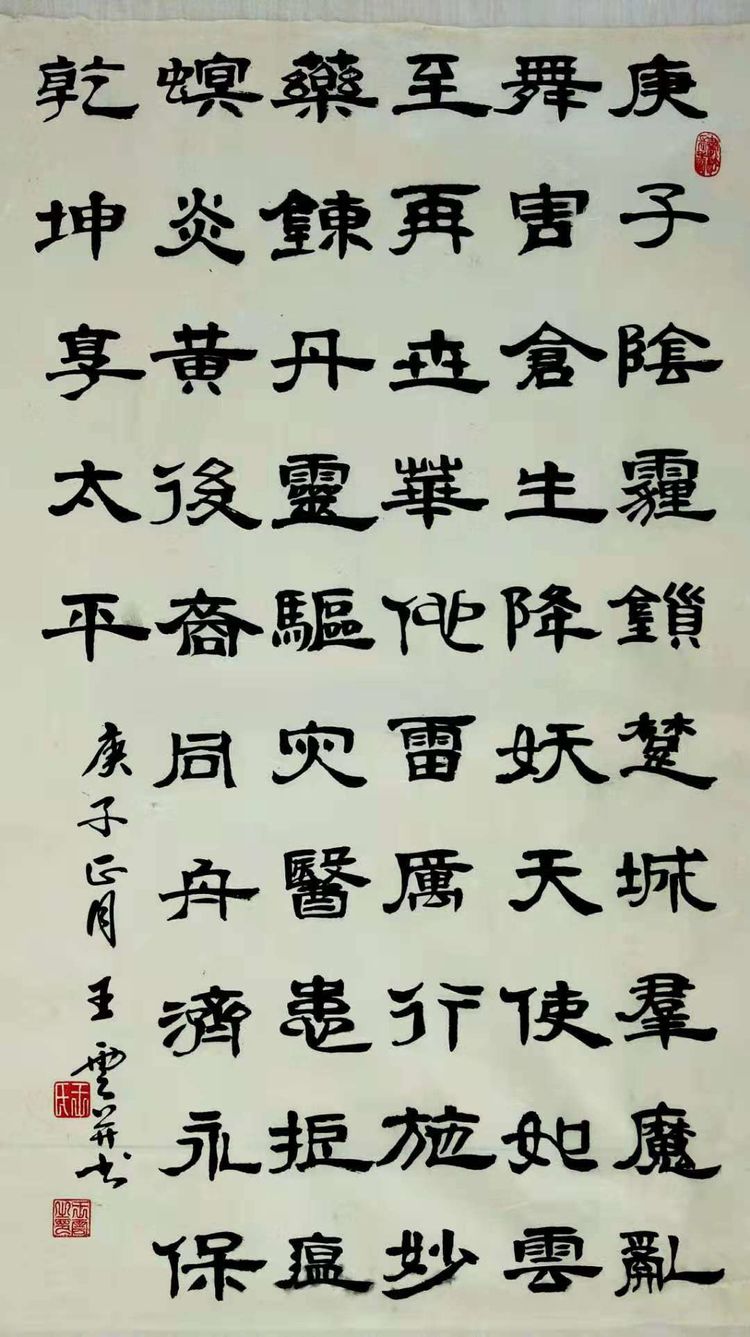 庚子陰霾鎖楚城羣魔亂
舞害倉生降妖天使如雲
至再世華佗雷厲行施妙
藥鍊丹靈驅灾醫患拒瘟
螟炎黃後裔同舟濟永保
乾坤享太平
庚子正月王雲书